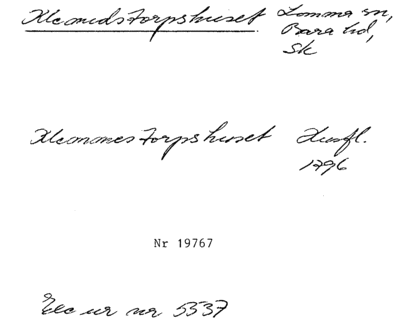 Kleomedstorpshuset Lomma sn,
Bara hd,
Sk
Kleommestorpshuset Husfl.
1796
Nr 19767
Exc ur nr 5537